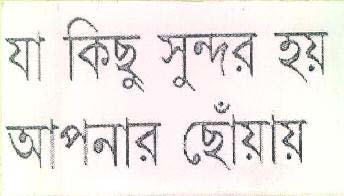 যা কিছু সুন্দর হয়
আপনার ছোঁয়ায়